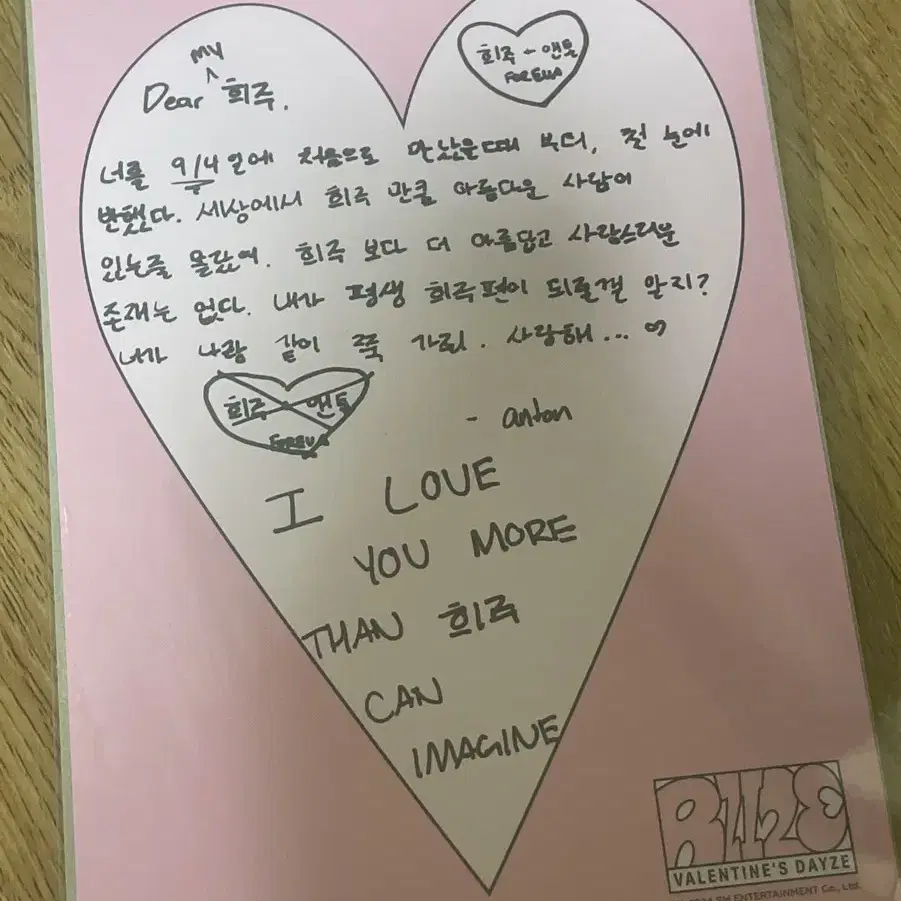 my
Dear 희주.
희주 - 앤톤
FOREVA
너를 9/4일에 처음으로 만났은때 부터, 첫 눈에
반했다. 세상에서 희주 만큼 아름다운 사람이
있는줄 몰랐어. 희주 보다 더 아름답고 사랑스러운
존재는 없다. 내가 평생 희주편이 되줄껄 알지?
너가 나랑 같이 쭉 가리. 사랑해...
희주 앤톤
FOREVA
- anton
I LOVE
YOU MORE
THAN 희주
CAN
IMAGINE
RIIZE
VALENTINE'S DAYZE
SM ENTERTAINMENT Co., Ltd.